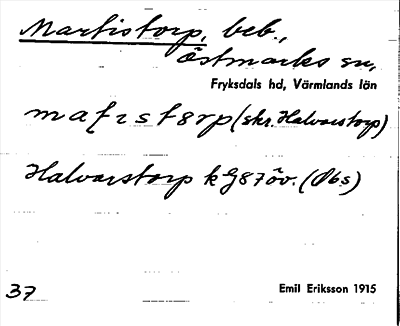 Martistorp, beb.,
Östmarks sn,
Fryksdals hd, Värmlands län
(skr. Halvarstorp)
Halvarstorp k G87öv. (Obs)
37
Emil Eriksson 1915